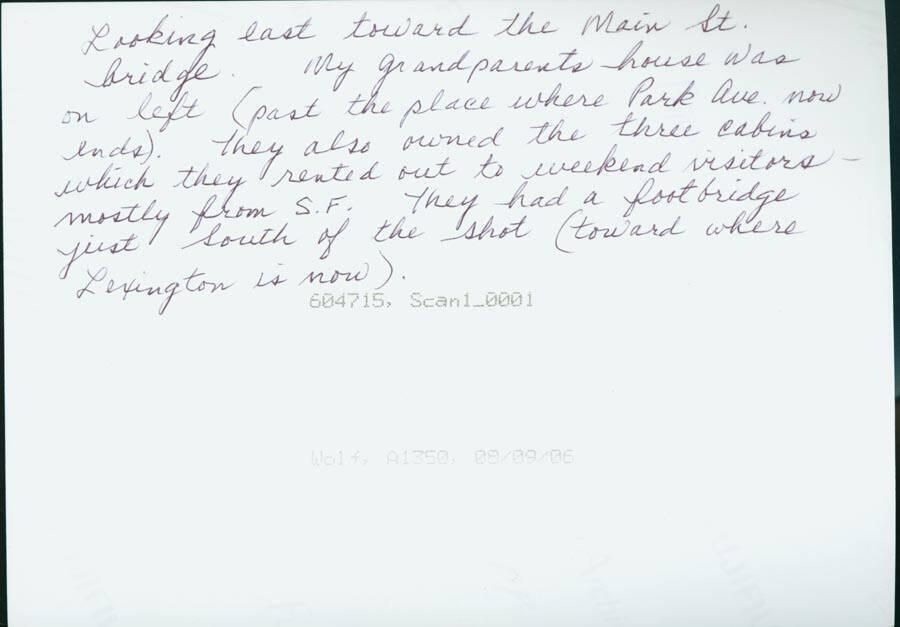 Looking east toward the Main St.
bridge. My grandparents house was
on left (past the place where Park Ave. now
ends). They also owned the three cabins
which they rented out to weekend visitors –
mostly from S.F. They had a footbridge
just South of the shot (toward where
Lexington is now).
604715, Scan1_0001
Wolf, A1350, 08/09/06